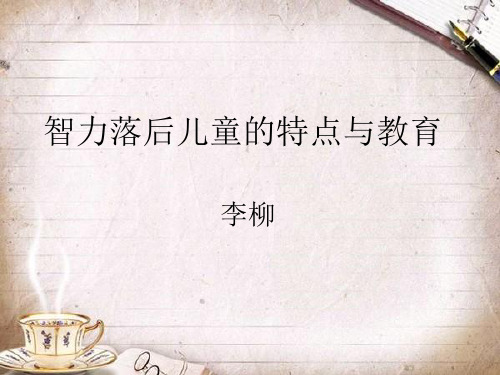 智力落后儿童的特点与教育
李柳